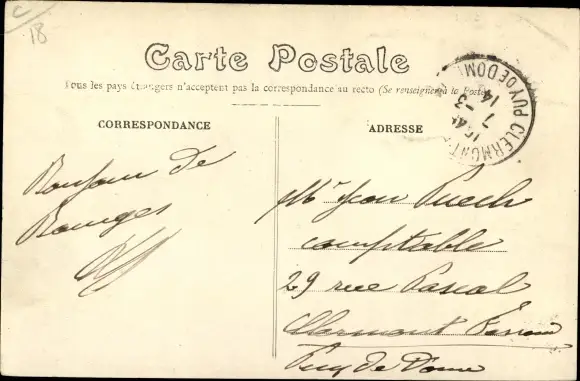 C
18
Carte Postale
Tous les pays étrangers n'acceptent pas la correspondance au recto (Se renseigner à la Poste)
CLERMONT PUY DE DOME
7 -3
14
CORRESPONDANCE
ADRESSE
Bonjour de
Bourges
Mr Jean Puech
comptable
29 rue Pascal
Clermont Ferran
Puy de Dome